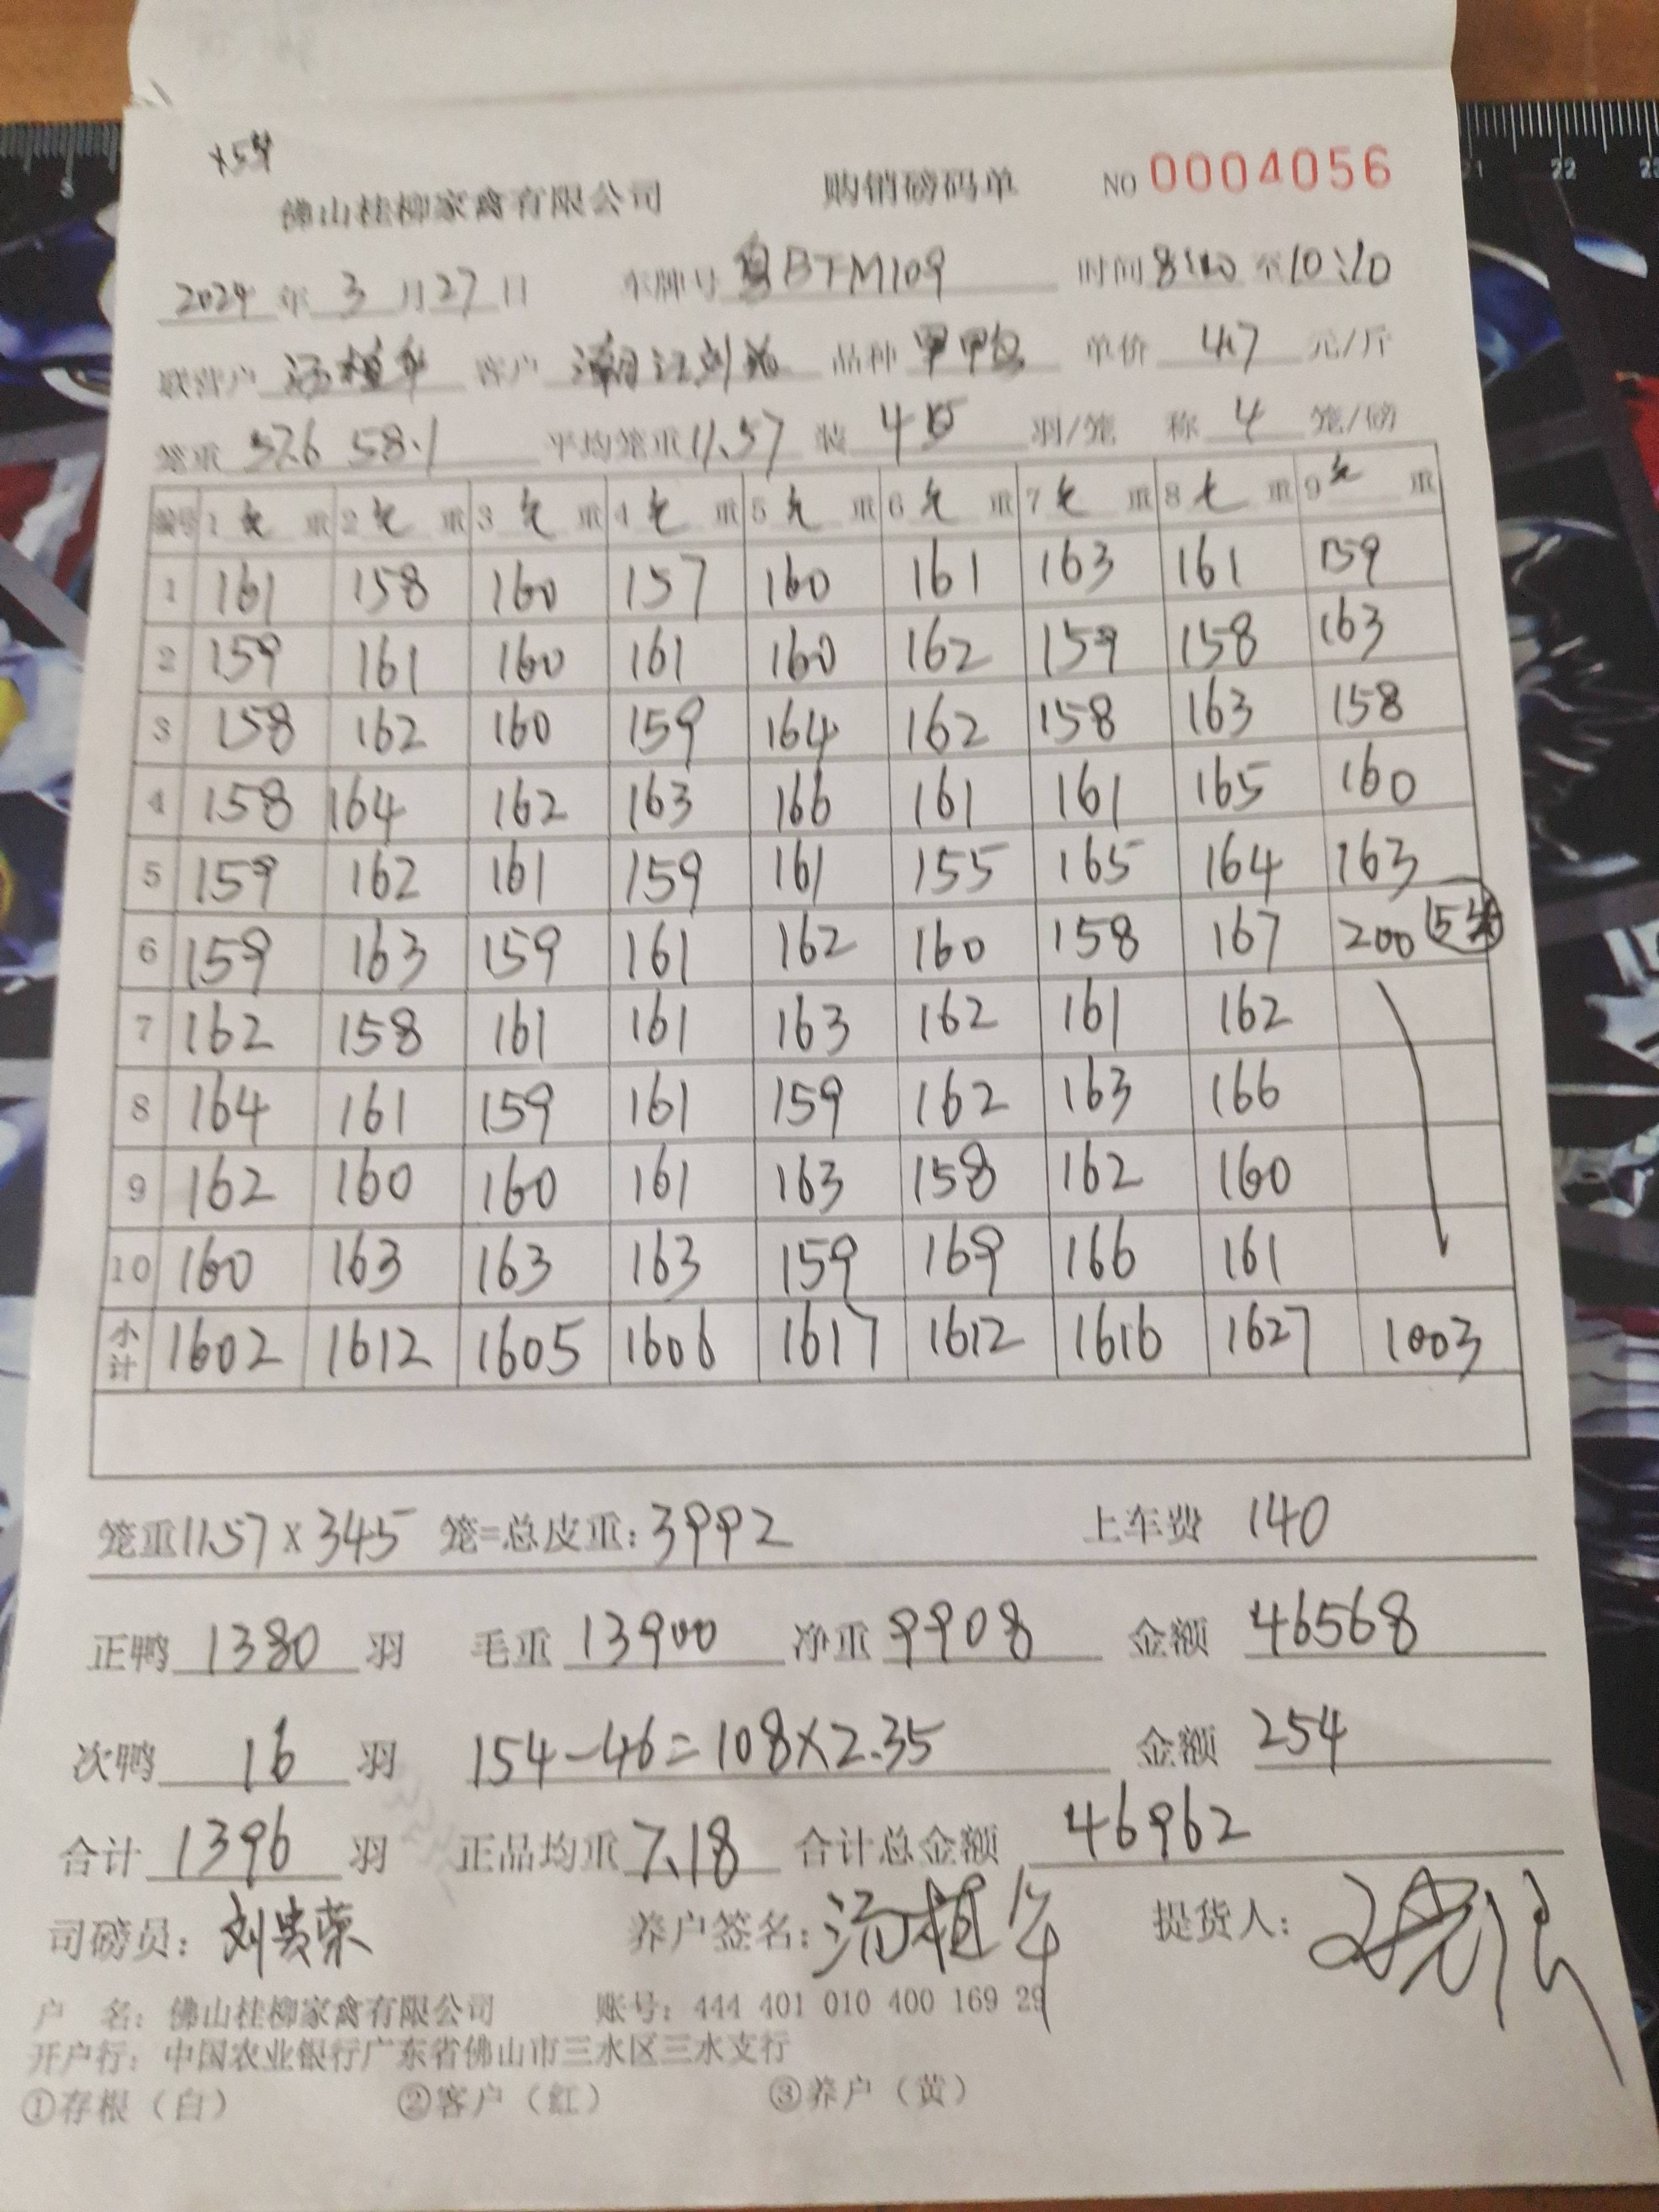 佛山桂柳家禽有限公司 购销磅码单 NO 0004056
2024 年 3 月 27 日 车牌号 粤BTM109 时间 8:00 至 10:10
联营户 客户 品种 单价 4.7 元/斤
笼重 57.6 58.1 平均笼重 11.57 装 4 羽/笼 称 4 笼/磅
编号 1 毛 重 2 毛 重 3 毛 重 4 毛 重 5 毛 重 6 毛 重 7 毛 重 8 毛 重 9 毛 重
1 161 158 160 157 160 161 163 161 159
2 159 161 160 161 160 162 159 158 163
3 158 162 160 159 164 162 158 163 158
4 158 164 162 163 166 161 161 165 160
5 159 162 161 159 161 155 165 164 163
6 159 163 159 161 162 160 158 167 200
7 162 158 161 161 163 162 161 162
8 164 161 159 161 159 162 163 166
9 162 160 160 161 163 158 162 160
10 160 163 163 163 159 169 166 161
小计 1602 1612 1605 1606 1617 1612 1616 1627 1003
笼重 11.57 × 345 笼=总皮重: 3992 上车费 140
正鸭 1380 羽 毛重 13900 净重 9908 金额 46568
次鸭 16 羽 154-46=108×2.35 金额 254
合计 1396 羽 正品均重 7.18 合计总金额 46962
司磅员: 刘贵荣 养户签名: 提货人:
户 名: 佛山桂柳家禽有限公司 账号: 444 401 010 400 169 29
开户行: 中国农业银行广东省佛山市三水区三水支行
①存根（白） ②客户（红） ③养户（黄）